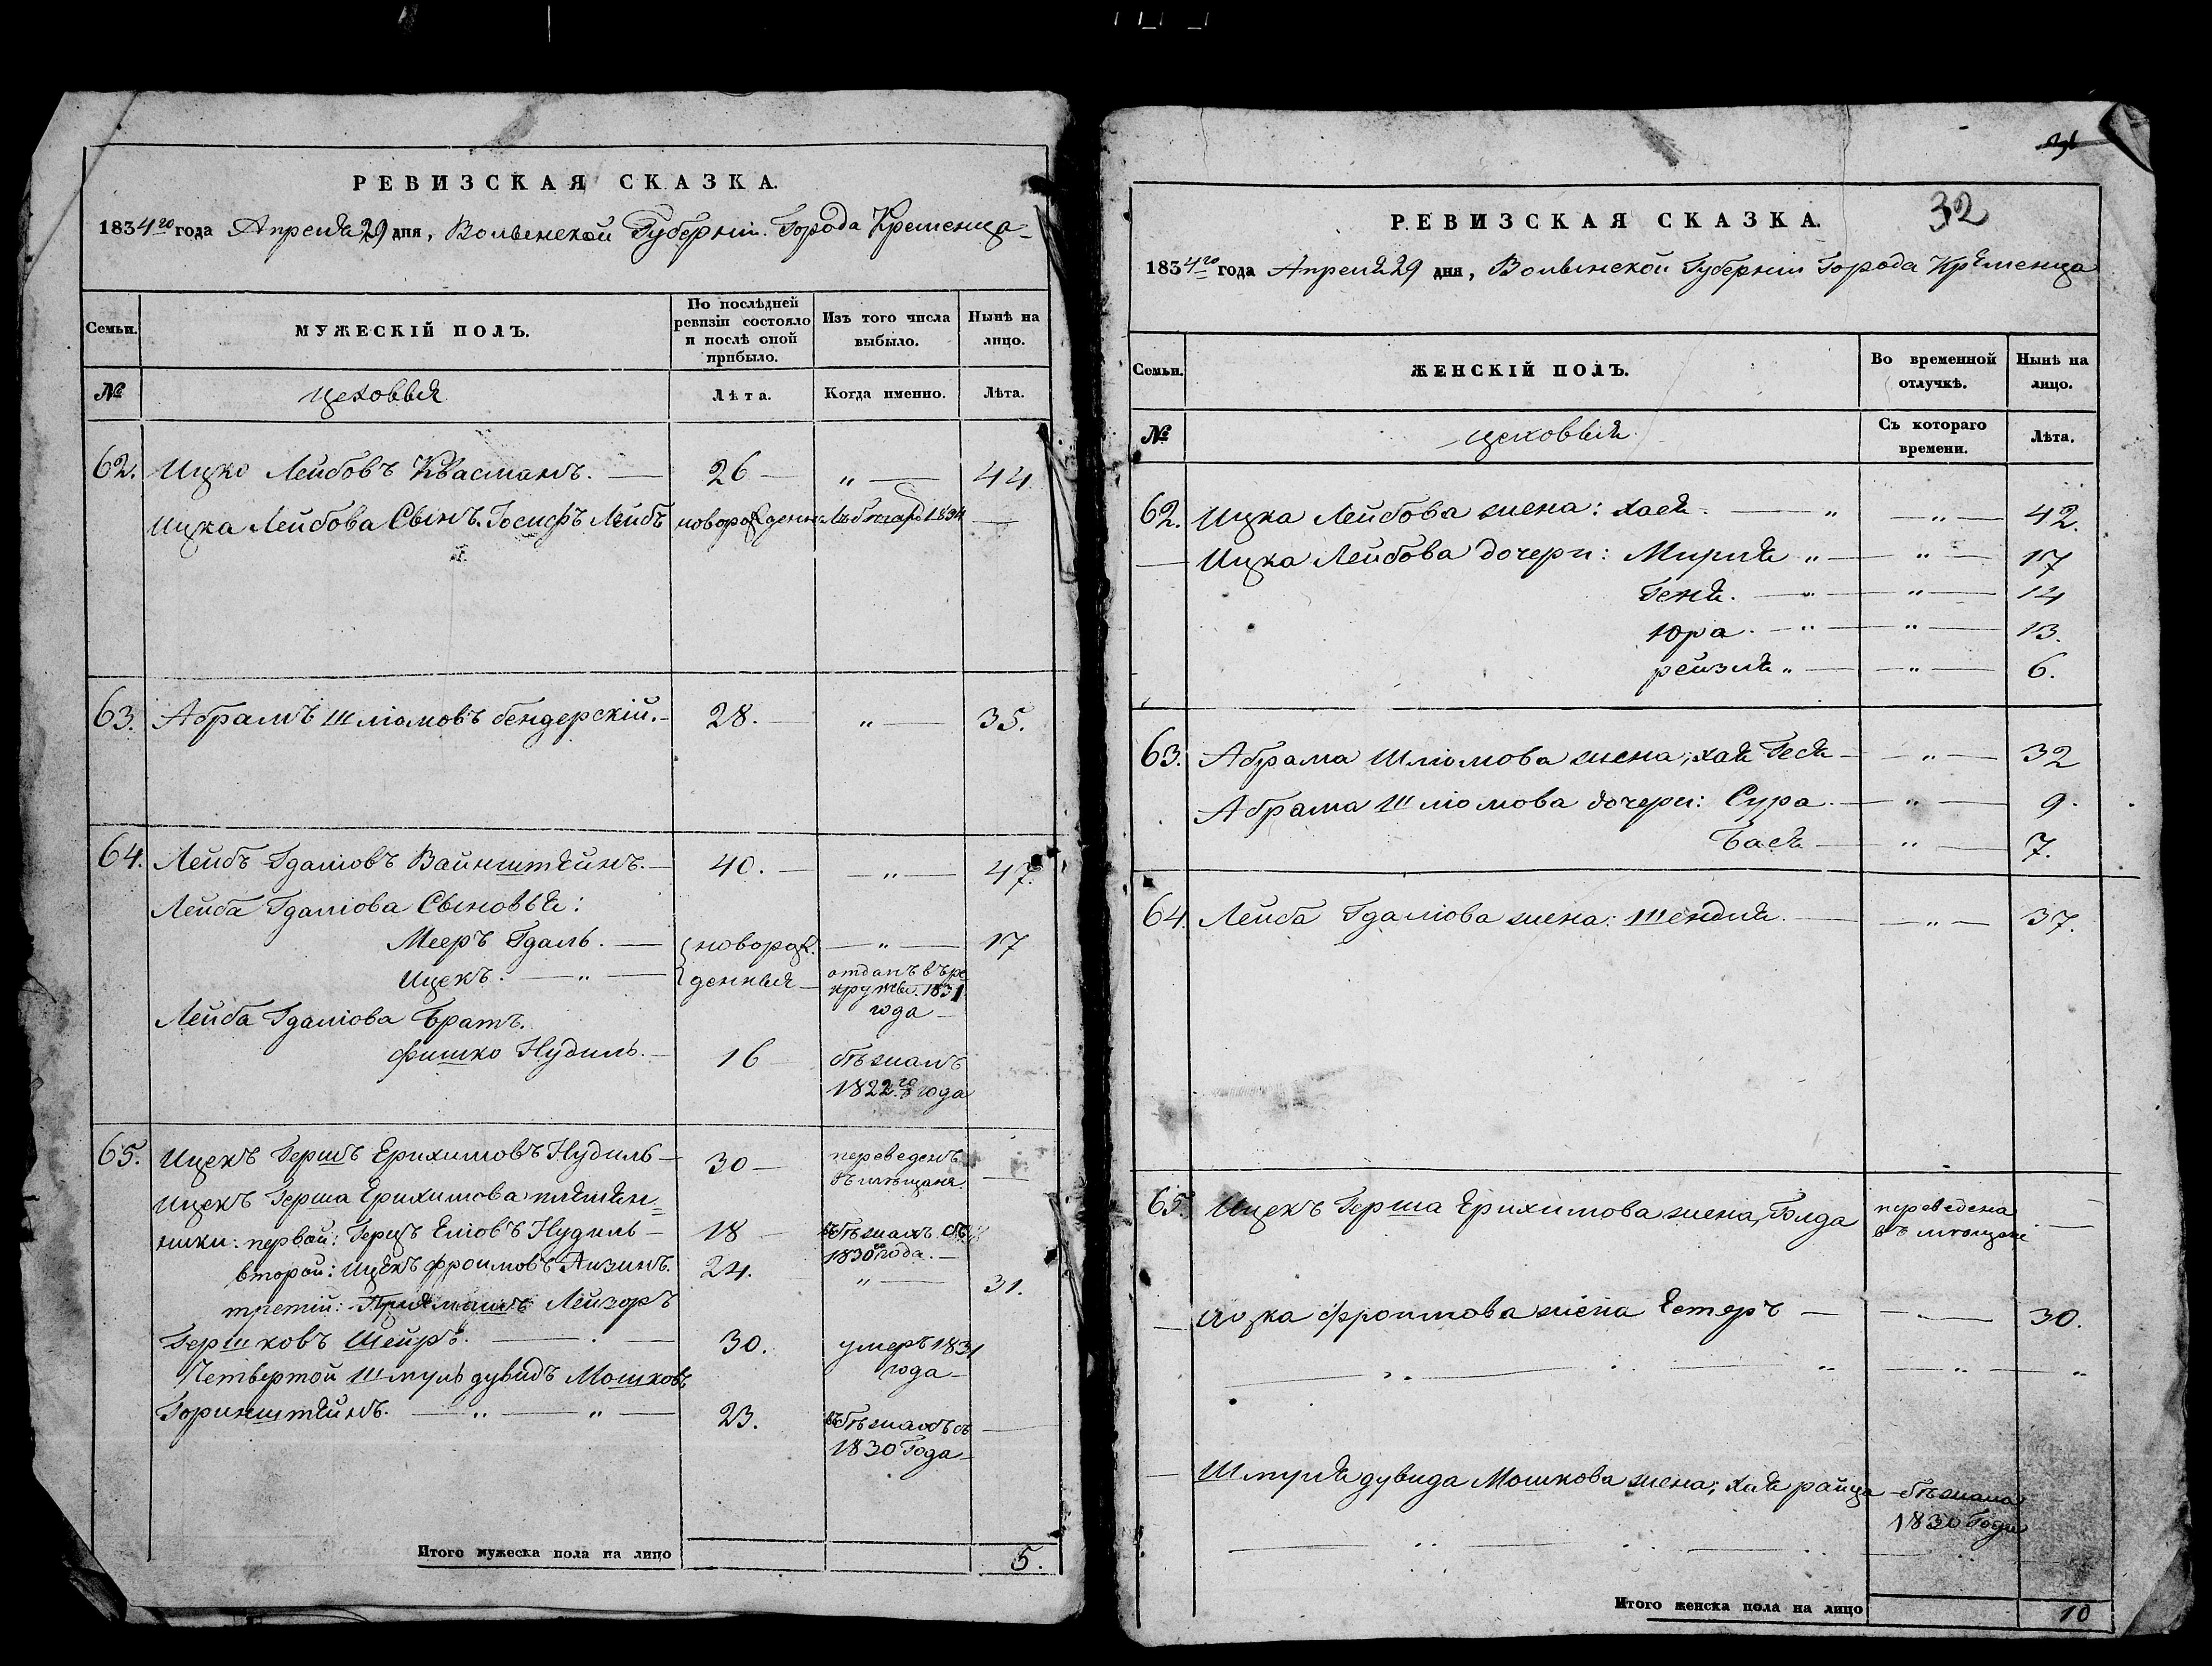 РЕВИЗСКАЯ СКАЗКА.
1834го года Апреля 29 дня, Волынской Губерніи. Города Кременца
Семьи.
МУЖЕСКІЙ ПОЛЪ.
По послѣдней ревизіи состояло и послѣ оной прибыло.
Изъ того числа выбыло.
Нынѣ на лицо.
№
цеховыя
Лѣта.
Когда именно.
Лѣта.
62. Ицко Лейбовъ Квасманъ. — 26 — „ — 44
Ицка Лейбова Сынъ. Госифъ Лейбъ новорожденн 1834 —
63. Абрамъ Шліомовъ бендерскій. — 28. — „ — 35.
64. Лейбъ Гдаліовъ Вайнштейнъ. — 40. — — „ — 47.
Лейба Гдаліова Сыновья:
Мееръ Гдаль. — новорож — „ — 17
Ицекъ. — „ — денныя — отданъ въ ре
круты. 1831
года —
Лейба Гдаліова Братъ.
фишко Нудиль. — 16 — бѣжалъ
1822го года
65. Ицекъ Гершъ Ерихимовъ Нудиль — 30 — переведенъ
въ мѣщаня. —
Ицекъ Герша Ерихимова племян=
ники: первой: Герщъ Еліовъ Нудиль — 18 — въ бѣжахъ съ
1830го года. —
второй: Ицекъ фроимовъ Аизинъ. 24. „ — 31.
третій: Лейзоръ
Гершковъ Шейръ. — . — 30. умеръ 1831
года —
Четвертой Шмуль дувидъ Мошковъ
Горинштейнъ. — „ — „ — 23. въ бѣжахъ съ —
1830 Года —
Итого мужеска пола на лицо 5.
31
32
РЕВИЗСКАЯ СКАЗКА.
1834го года Апреля 29 дня, Волынской Губерніи Города Кременца
Семьи.
ЖЕНСКІЙ ПОЛЪ.
Во временной отлучкѣ.
Нынѣ на лицо.
№
цеховыя
Съ котораго времени.
Лѣта.
62. Ицка Лейбова жена: Хася. — „ — „ — 42.
— Ицка Лейбова дочери: Миріля „ — — „ — 17
Геня. — „ — „ — 14
Юра. — „ — „ — 13.
рейзия „ — — „ — 6.
63. Абрама Шліомова жена, хая Геся — — „ — 32
Абрама Шліомова дочери: Сура. — — „ — 9.
Бася — — „ — 7.
64. Лейба Гдаліова жена: Шендля. — — „ — 37.
65. Ицекъ Герша Ерихимова жена, Голда переведена —
въ мѣщане
— Ицка фроимова жена Естеръ — — — 30.
Шмуля дувида Мошкова жена; Хая райца — бѣжала
1830 Года
Итого женска пола на лицо 10